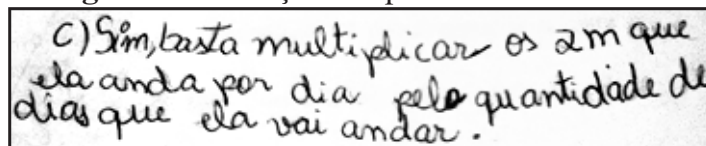 C) Sim, basta multiplicar os 2m que
ela anda por dia pela quantidade de
dias que ela vai andar.